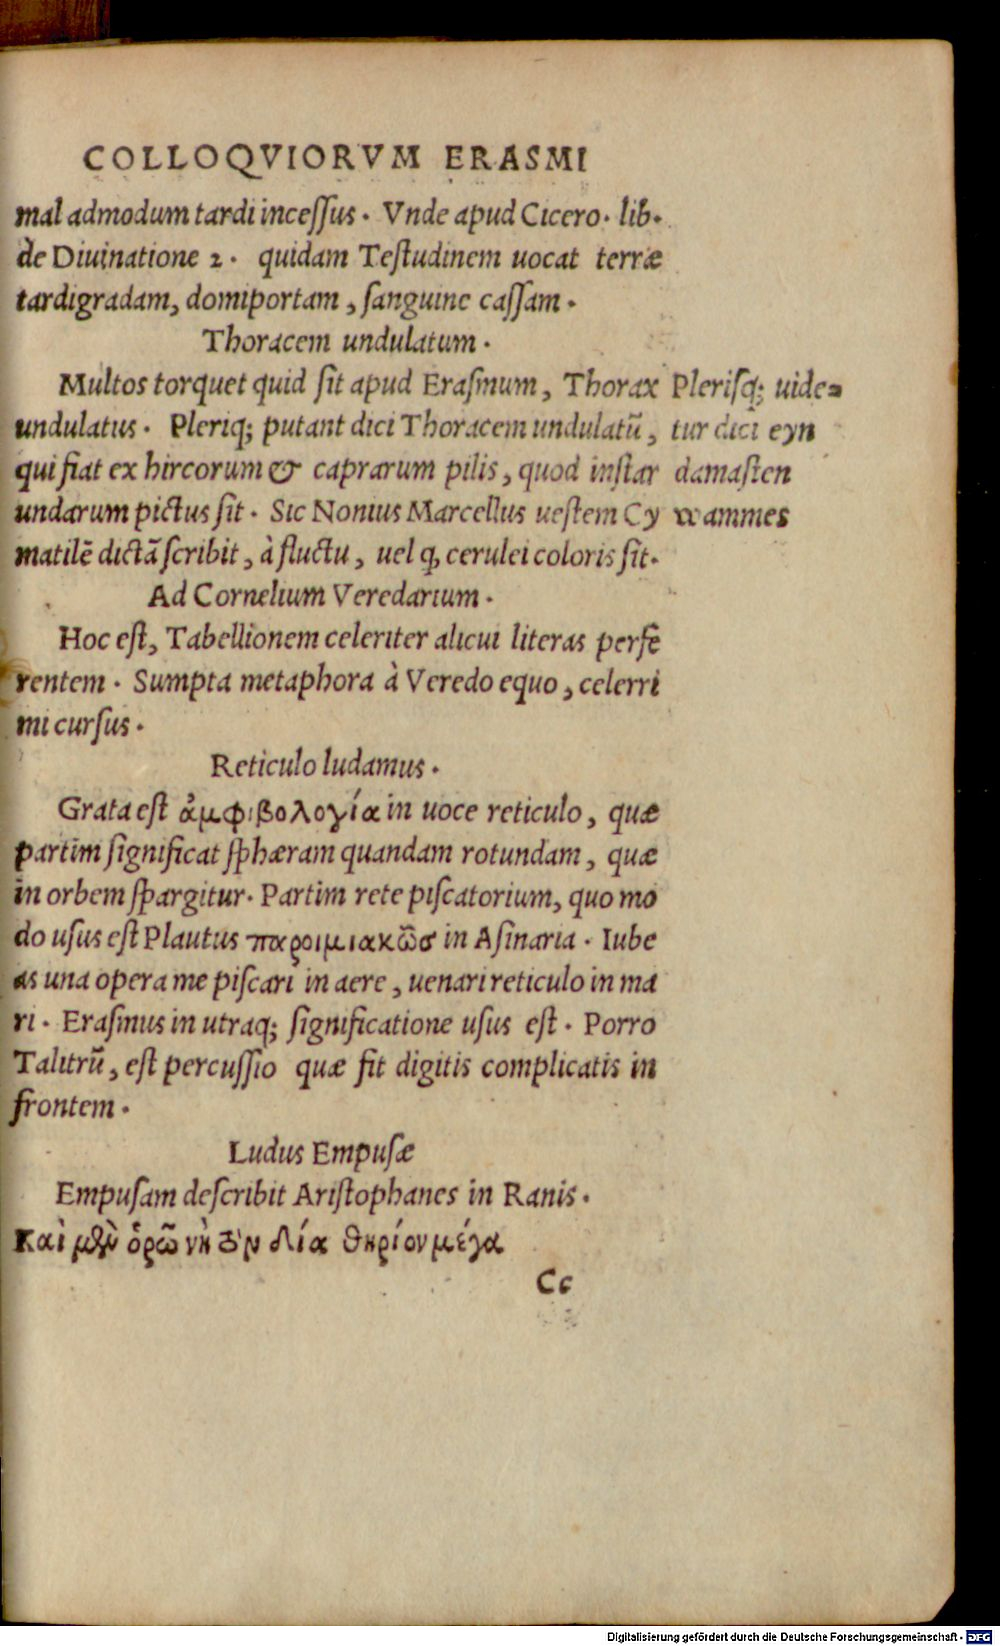 COLLOQVIORVM ERASMI
mal admodum tardi incessus. Vnde apud Cicero. lib.
de Diuinatione 2. quidam Testudinem uocat terræ
tardigradam, domiportam, sanguine cassam.
Thoracem undulatum.
Multos torquet quid sit apud Erasmum, Thorax
undulatus. Pleriq; putant dici Thoracem undulatū,
qui fiat ex hircorum & caprarum pilis, quod instar
undarum pictus sit. Sic Nonius Marcellus uestem Cy
matilē dictā scribit, à fluctu, uel q, cerulei coloris sit.
Plerisq; uide=
tur dici eyn
damasten
wammes
Ad Cornelium Veredarium.
Hoc est, Tabellionem celeriter alicui literas perfe
rentem. Sumpta metaphora à Veredo equo, celerri
mi cursus.
Reticulo ludamus.
Grata est ἀμφιβολογία in uoce reticulo, quæ
partim significat sphæram quandam rotundam, quæ
in orbem spargitur. Partim rete piscatorium, quo mo
do usus est Plautus παροιμιακῶσ in Asinaria. Iube
as una opera me piscari in aere, uenari reticulo in ma
ri. Erasmus in utraq; significatione usus est. Porro
Talitrū, est percussio quæ fit digitis complicatis in
frontem.
Ludus Empusæ
Empusam describit Aristophanes in Ranis.
Καὶ μὴν ὁρῶ νὴ τὸν Δία θηρίον μέγα
Cc
Digitalisierung gefördert durch die Deutsche Forschungsgemeinschaft - DFG